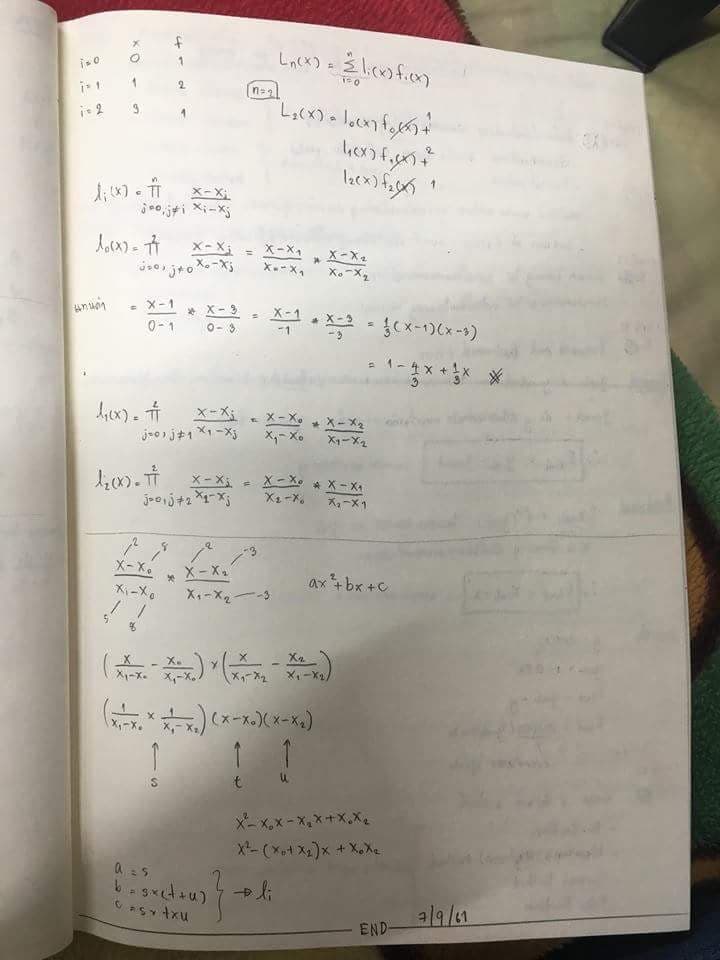 x f
i=0 0 1
i=1 1 2
i=2 3 1
Lₙ(x) = Σⁿᵢ₌₀ lᵢ(x) fᵢ(x)
n=2
L₂(x) = l₀(x) f₀(x) 1 +
l₁(x) f₁(x) 2 +
l₂(x) f₂(x) 1
lᵢ(x) = ∏ⁿ j=0, j≠i (x-xⱼ)/(xᵢ-xⱼ)
l₀(x) = ∏² j=0, j≠0 (x-xⱼ)/(x₀-xⱼ) = (x-x₁)/(x₀-x₁) * (x-x₂)/(x₀-x₂)
แทนค่า = (x-1)/(0-1) * (x-3)/(0-3) = (x-1)/-1 * (x-3)/-3 = 1/3 (x-1)(x-3)
= 1 - 4/3 x + 1/3 x
l₁(x) = ∏² j=0, j≠1 (x-xⱼ)/(x₁-xⱼ) = (x-x₀)/(x₁-x₀) * (x-x₂)/(x₁-x₂)
l₂(x) = ∏² j=0, j≠2 (x-xⱼ)/(x₂-xⱼ) = (x-x₀)/(x₂-x₀) * (x-x₁)/(x₂-x₁)
2 8 2 -3
(x-x₀)/(x₁-x₀) * (x-x₂)/(x₁-x₂) -3 ax²+bx+c
5 8
(x/(x₁-x₀) - x₀/(x₁-x₀)) × (x/(x₁-x₂) - x₂/(x₁-x₂))
(1/(x₁-x₀) × 1/(x₁-x₂)) (x-x₀)(x-x₂)
↑ ↑ ↑
s t u
x²-x₀x-x₂x+x₀x₂
x²-(x₀+x₂)x + x₀x₂
a = s
b = s×(t+u) } → lᵢ
c = s×t×u
END 7/9/61